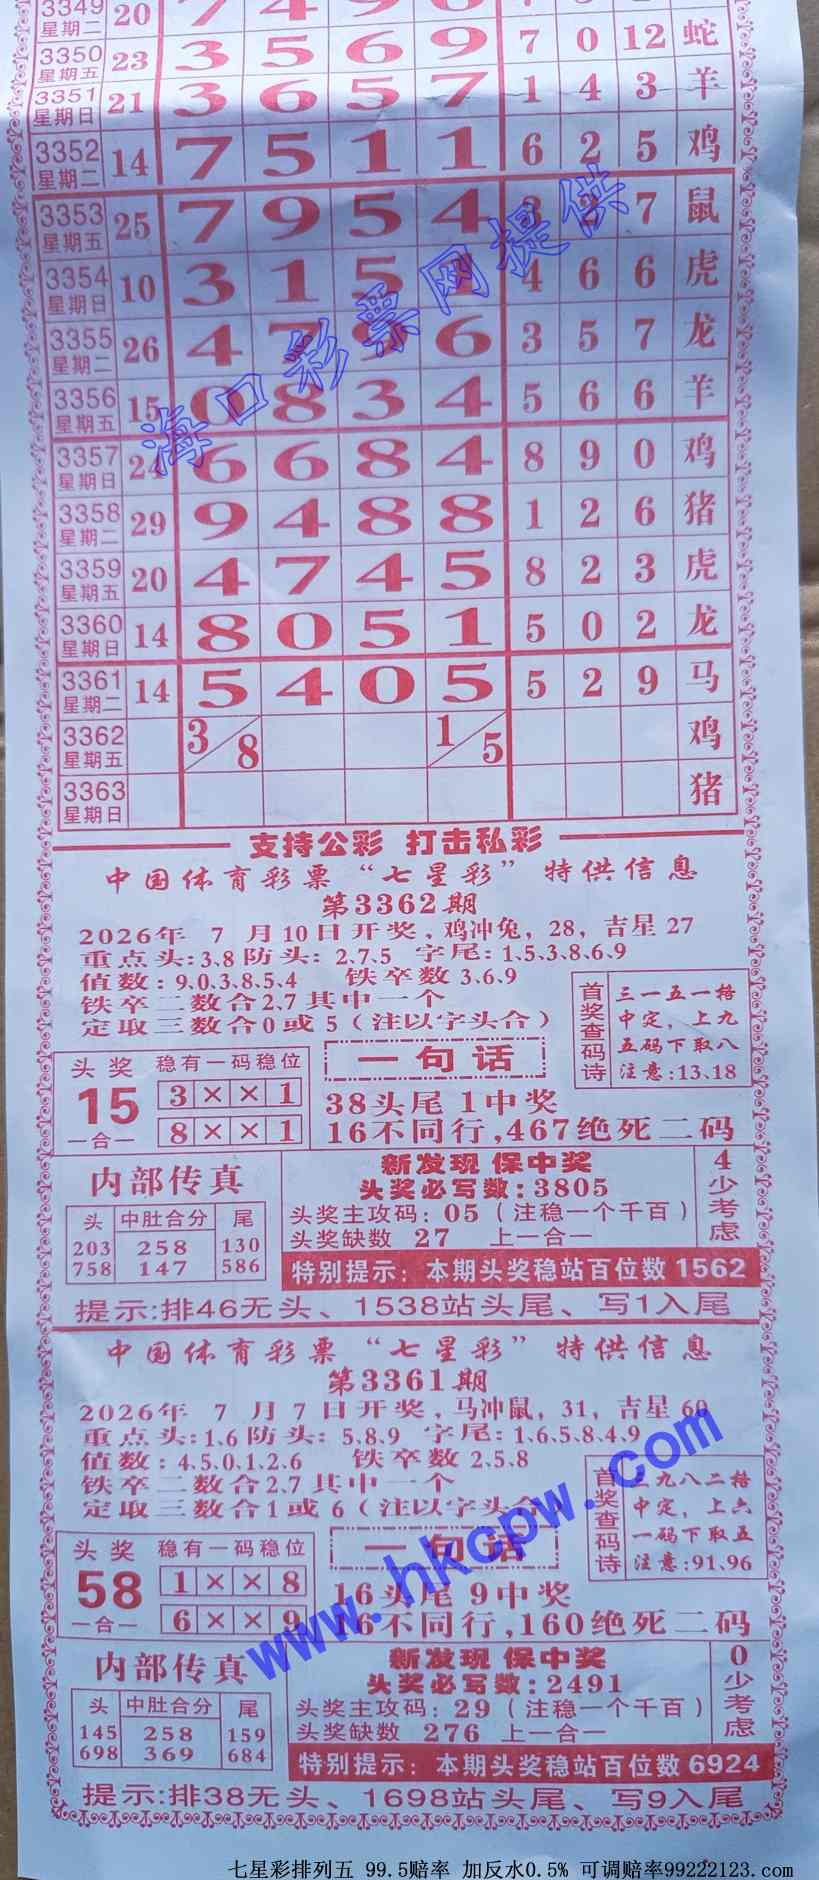 3349 星期二 20 7 4 9 6
3350 星期五 23 3 5 6 9 7 0 12 蛇
3351 星期日 21 3 6 5 7 1 4 3 羊
3352 星期二 14 7 5 1 1 6 2 5 鸡
3353 星期五 25 7 9 5 4 3 2 7 鼠
3354 星期日 10 3 1 5 1 4 6 6 虎
3355 星期二 26 4 7 9 6 3 5 7 龙
3356 星期五 15 0 8 3 4 5 6 6 羊
3357 星期日 24 6 6 8 4 8 9 0 鸡
3358 星期二 29 9 4 8 8 1 2 6 猪
3359 星期五 20 4 7 4 5 8 2 3 虎
3360 星期日 14 8 0 5 1 5 0 2 龙
3361 星期二 14 5 4 0 5 5 2 9 马
3362 星期五 3/8 1/5 鸡
3363 星期日 猪
海口彩票网提供
支持公彩 打击私彩
中国体育彩票“七星彩”特供信息
第3362期
2026年 7 月10日开奖,鸡冲兔,28,吉星27
重点头:3.8防头:2.7.5 字尾:1.5.3.8.6.9
值数:9.0.3.8.5.4 铁卒数3.6.9
铁卒二数合2.7其中一个
定取三数合0或5(注以字头合)
首奖查码诗
三一五一格
中定,上九
五码下取八
注意:13.18
头奖 稳有一码稳位
15 3 × × 1
一合一 8 × × 1
一句话
38头尾1中奖
16不同行,467绝死二码
内部传真
头 中肚合分 尾
203 258 130
758 147 586
新发现 保中奖
头奖必写数:3805
头奖主攻码:05(注稳一个千百)
头奖缺数 27 上一合一
4少考虑
特别提示:本期头奖稳站百位数1562
提示:排46无头、1538站头尾、写1入尾
中国体育彩票“七星彩”特供信息
第3361期
2026年 7 月 7 日开奖,马冲鼠,31,吉星60
重点头:1.6防头:5.8.9 字尾:1.6.5.8.4.9
值数:4.5.0.1.2.6 铁卒数2.5.8
铁卒二数合2.7其中一个
定取三数合1或6(注以字头合
首奖查码诗
九八二格
中定,上六
一码下取五
注意:91.96
头奖 稳有一码稳位
58 1 × × 8
一合一 6 × × 9
一句话
16头尾9中奖
16不同行,160绝死二码
内部传真
头 中肚合分 尾
145 258 159
698 369 684
新发现 保中奖
头奖必写数:2491
头奖主攻码:29(注稳一个千百)
头奖缺数 276 上一合一
0少考虑
特别提示:本期头奖稳站百位数6924
提示:排38无头、1698站头尾、写9入尾
www.hkcpw.com
七星彩排列五 99.5赔率 加反水0.5% 可调赔率99222123.com